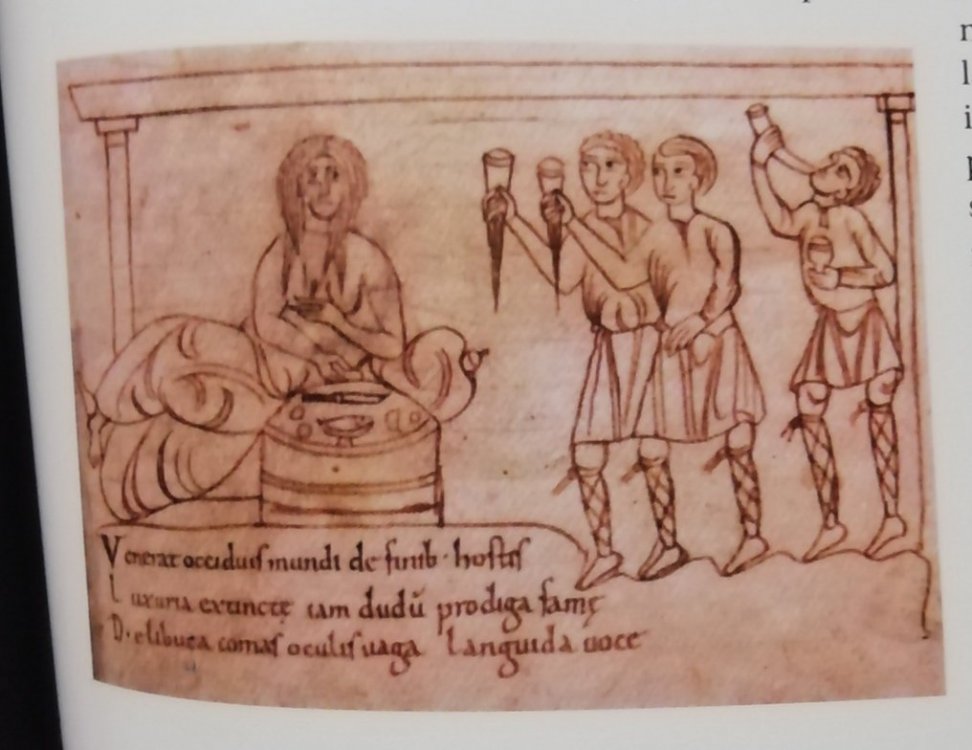 Venerat occiduis mundi de finib· hostis
Luxuria extinctę iam dudū prodiga famę
D·elibuta comas oculis uaga languida uoce